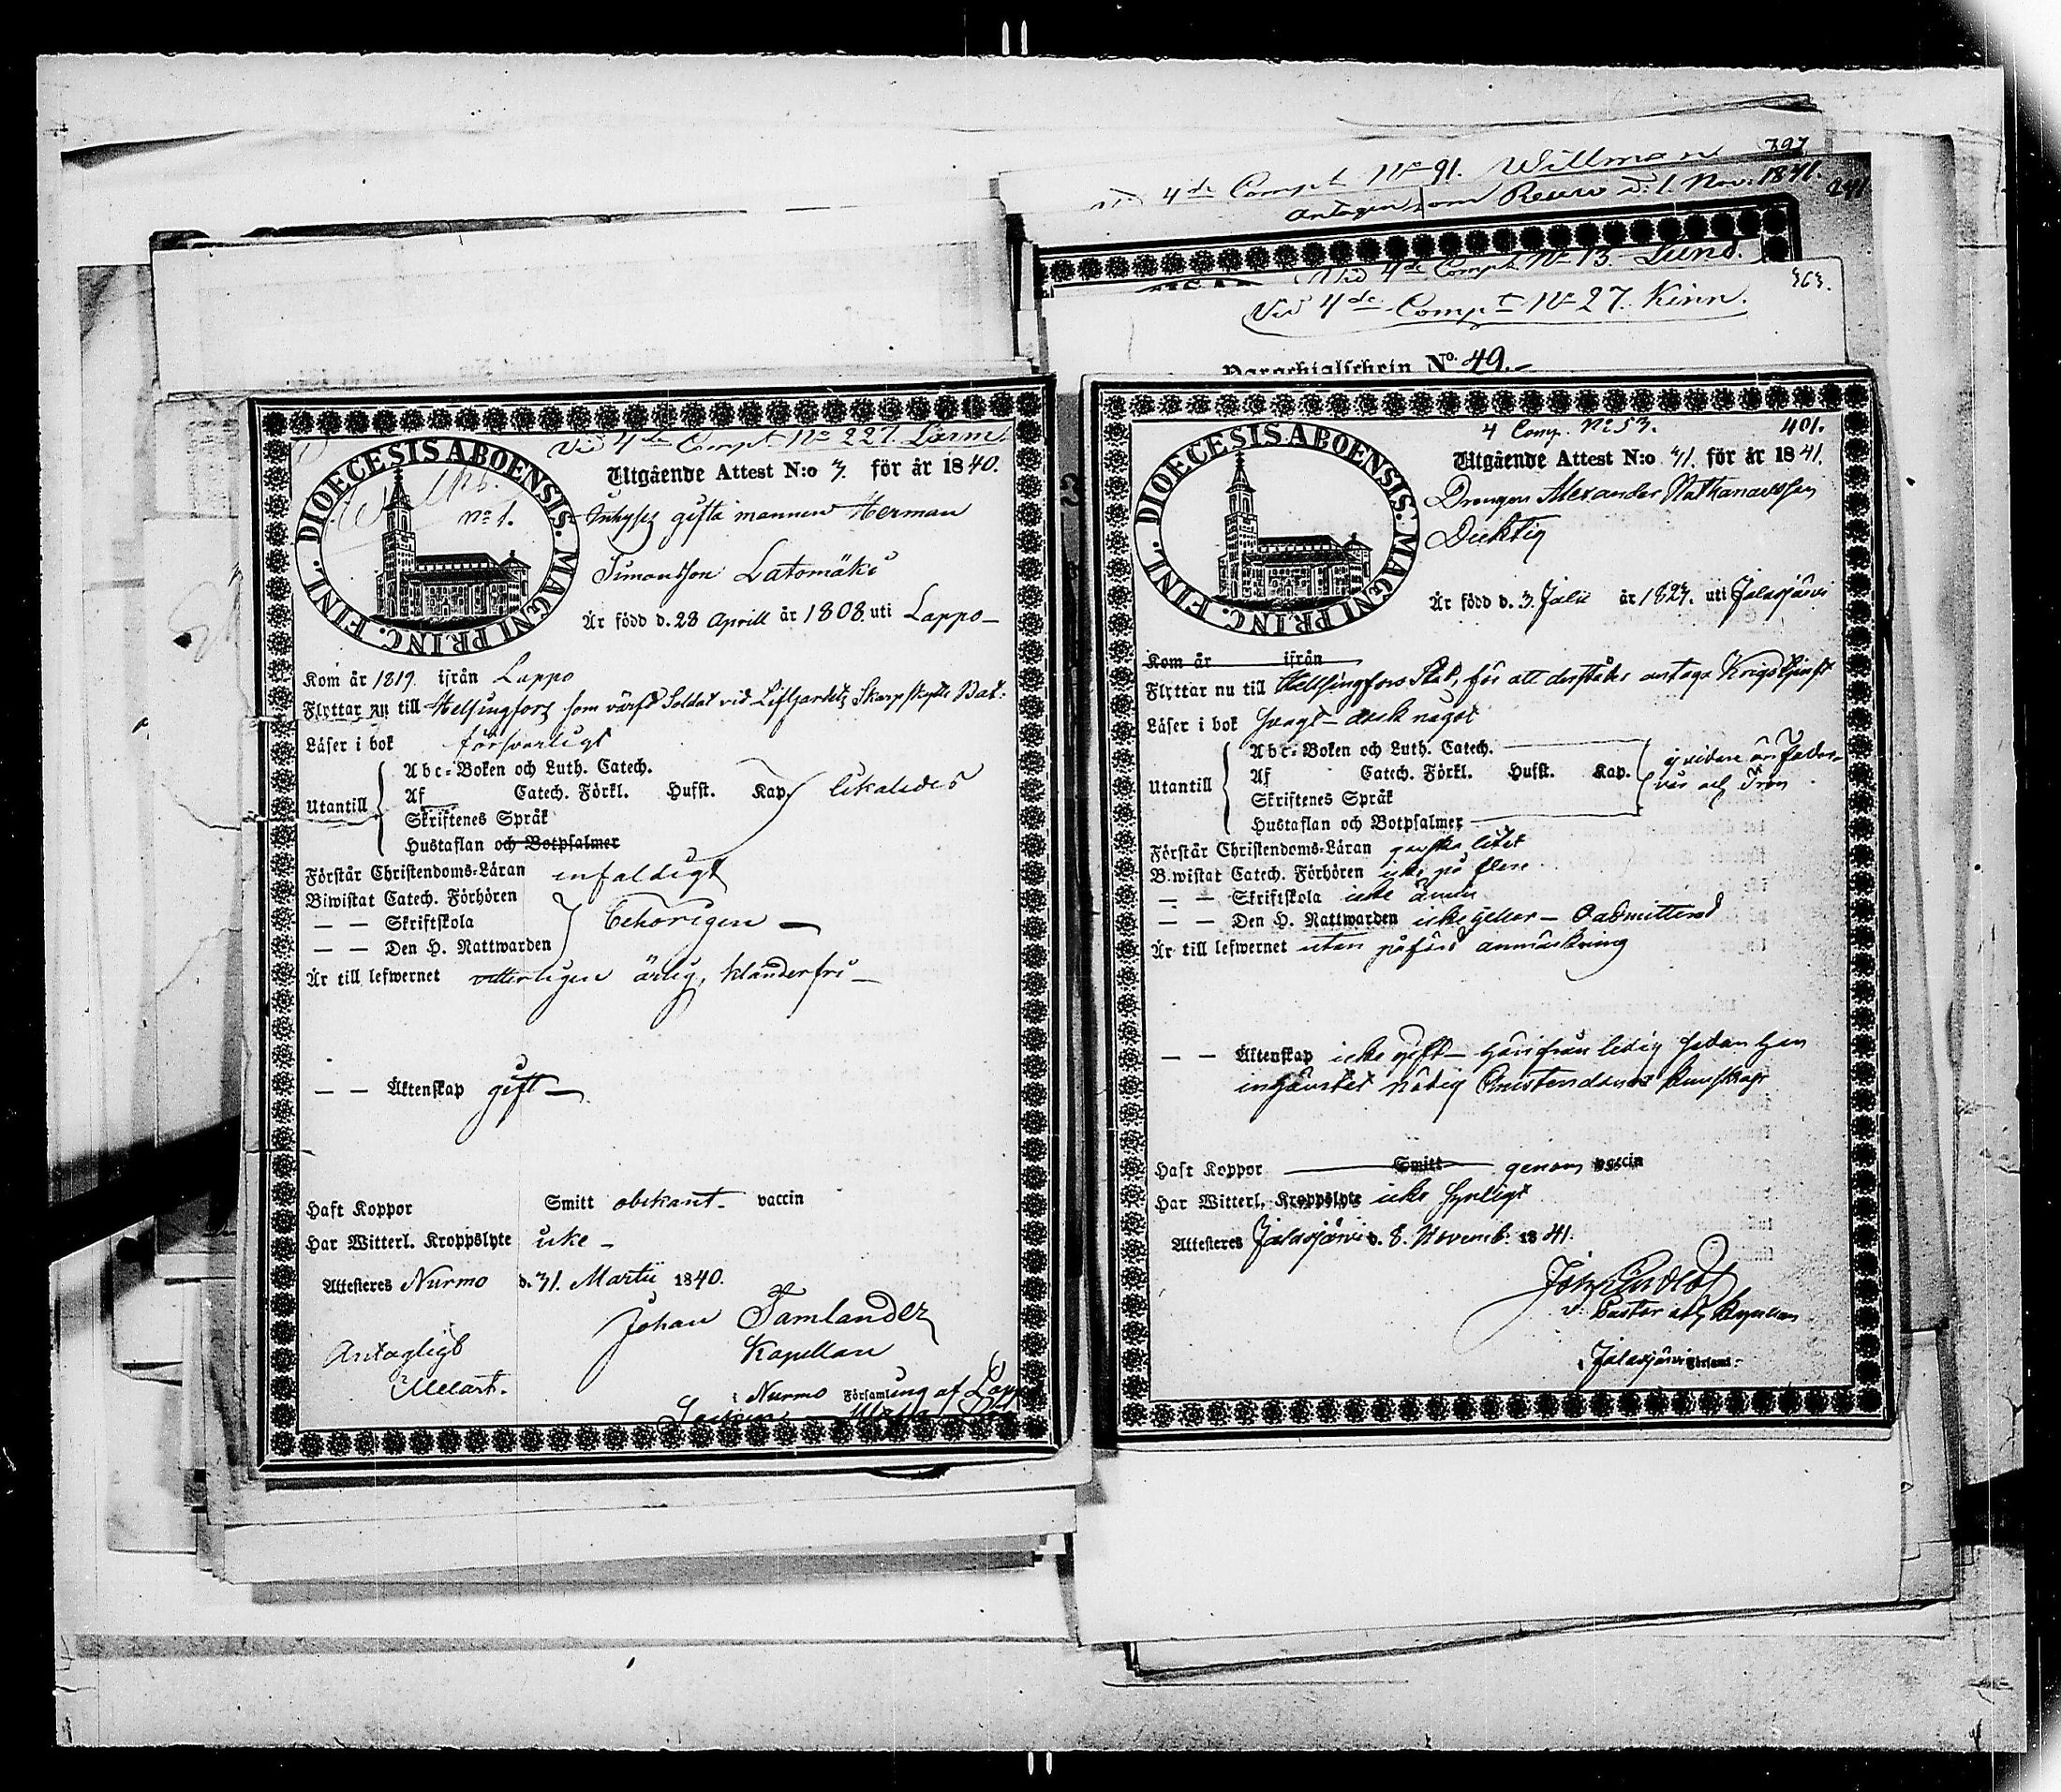 397
4de Compt No 91. Willman
Antagen som Recrut d. 1. Nov: 1841.
241
Vid 4de Compt No 13. Lund.
363.
Vid 4de Compt No 27. Kinn.
Parochialschein No. 49.
Vid 4de Compt No 227. Larm
DIOECESIS ABOENSIS. MAGNI PRINC. FINL.
No 1.
Utgående Attest N:o 3. för år 1840.
Inhyses gifta mannen Herman
Simonsson Latomäki
Är född d. 23 Aprill år 1808. uti Lappo
Kom år 1819. ifrån Lappo
Flyttar nu till Helsingfors som värfd Soldat vid Lifgardets Skarpskytte Bat:
Läser i bok försvarligt
Utantill
Abc-Boken och Luth. Catech.
Af Catech. Förkl. Husst. Kap. likaledes
Skriftenes Språk
Hustaflan och Botpsalmer
Förstår Christendoms-Läran enfaldigt
Biwistat Catech. Förhören
— — Skriftskola behörigen —
— — Den H. Nattwarden
Är till lefwernet vitterligen ärlig, klanderfri —
— — Äktenskap gift —
Haft Koppor Smitt obekant. vaccin
Har Witterl. Kroppslyte icke —
Attesteras Nurmo d. 31. Martii 1840.
Johan Tamlander
Kapellan
Antagligt
Melart.
i Nurmo Församling af Lappo
4 Comp. No 53.
401.
DIOECESIS ABOENSIS. MAGNI PRINC. FINL.
Utgående Attest N:o 31. för år 1841.
Drengen Alexander Nathanaelsson
Duktig
Är född d. 3. Julii år 1823. uti Jalasjärvi
Kom år ifrån
Flyttar nu till Helsingfors Stad, för att derstädes antaga Krigstjenst
Läser i bok svagt — dock något
Utantill
Abc-Boken och Luth. Catech.
Af Catech. Förkl. Husst. Kap. ej vidare än Fader
vår och Tron
Skriftenes Språk
Hustaflan och Botpsalmer
Förstår Christendoms-Läran ganska litet
Biwistat Catech. Förhören icke på flere
— — Skriftskola icke ännu
— — Den H. Nattwarden icke heller — Oadmitterad
Är till lefwernet utan påförd anmärkning
— — Äktenskap icke gift — härifrån ledig sedan han
inhämtat nödig Christendoms kunskap
Haft Koppor Smitt genom vaccin
Har Witterl. Kroppslyte icke synligt
Attesteras Jalasjärvi d. 8. Novemb. 1841.
v. Pastor och Kapellan
i Jalasjärvi Församl.